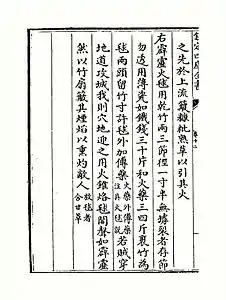 之先於上流簸糠粃熟草以引其火
右霹靂火毬用乾竹兩三節徑一寸半無罅裂者存節
勿透用薄瓷如鐵錢三十片和火藥三四斤裹竹為
毬兩頭留竹寸許毬外加傅藥火藥外傅藥注具火毬說若賊穿
地道攻城我則穴地迎之用火錐烙毬開聲如霹靂
然以竹扇簸其煙焰以熏灼敵人放毬者合甘草